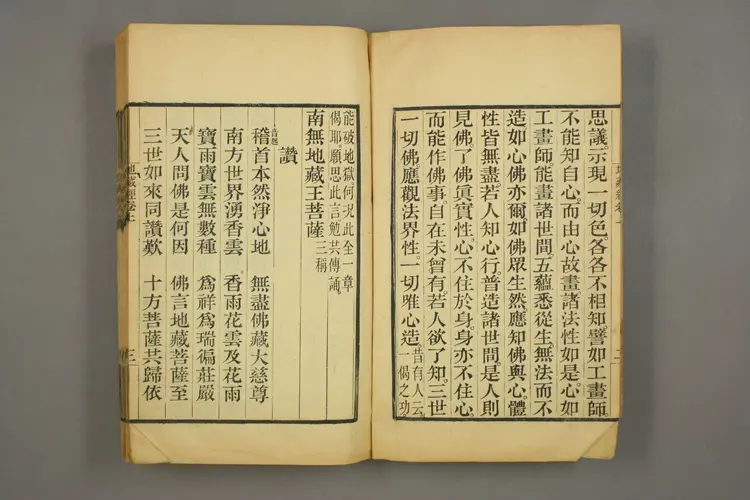 思議。示現一切色。各各不相知。譬如工畫師。
不能知自心。而由心故畫。諸法性如是。心如
工畫師。能畫諸世間。五蘊悉從生。無法而不
造。如心佛亦爾。如佛眾生然。應知佛與心。體
性皆無盡。若人知心行。普造諸世間。是人則
見佛。了佛眞實性。心不住於身。身亦不住心。
而能作佛事。自在未曾有。若人欲了知。三世
一切佛。應觀法界性。一切唯心造。昔有人云
一偈之功
能破地獄。何況此全一章
偈耶。願思此言。勉共傳誦。
南無地藏王菩薩 三稱
讚
稽首本然淨心地 無盡佛藏大慈尊
南方世界湧香雲 香雨花雲及花雨
寶雨寶雲無數種 爲祥爲瑞徧莊嚴
天人問佛是何因 佛言地藏菩薩至
三世如來同讚歎 十方菩薩共歸依
地藏經卷上 三